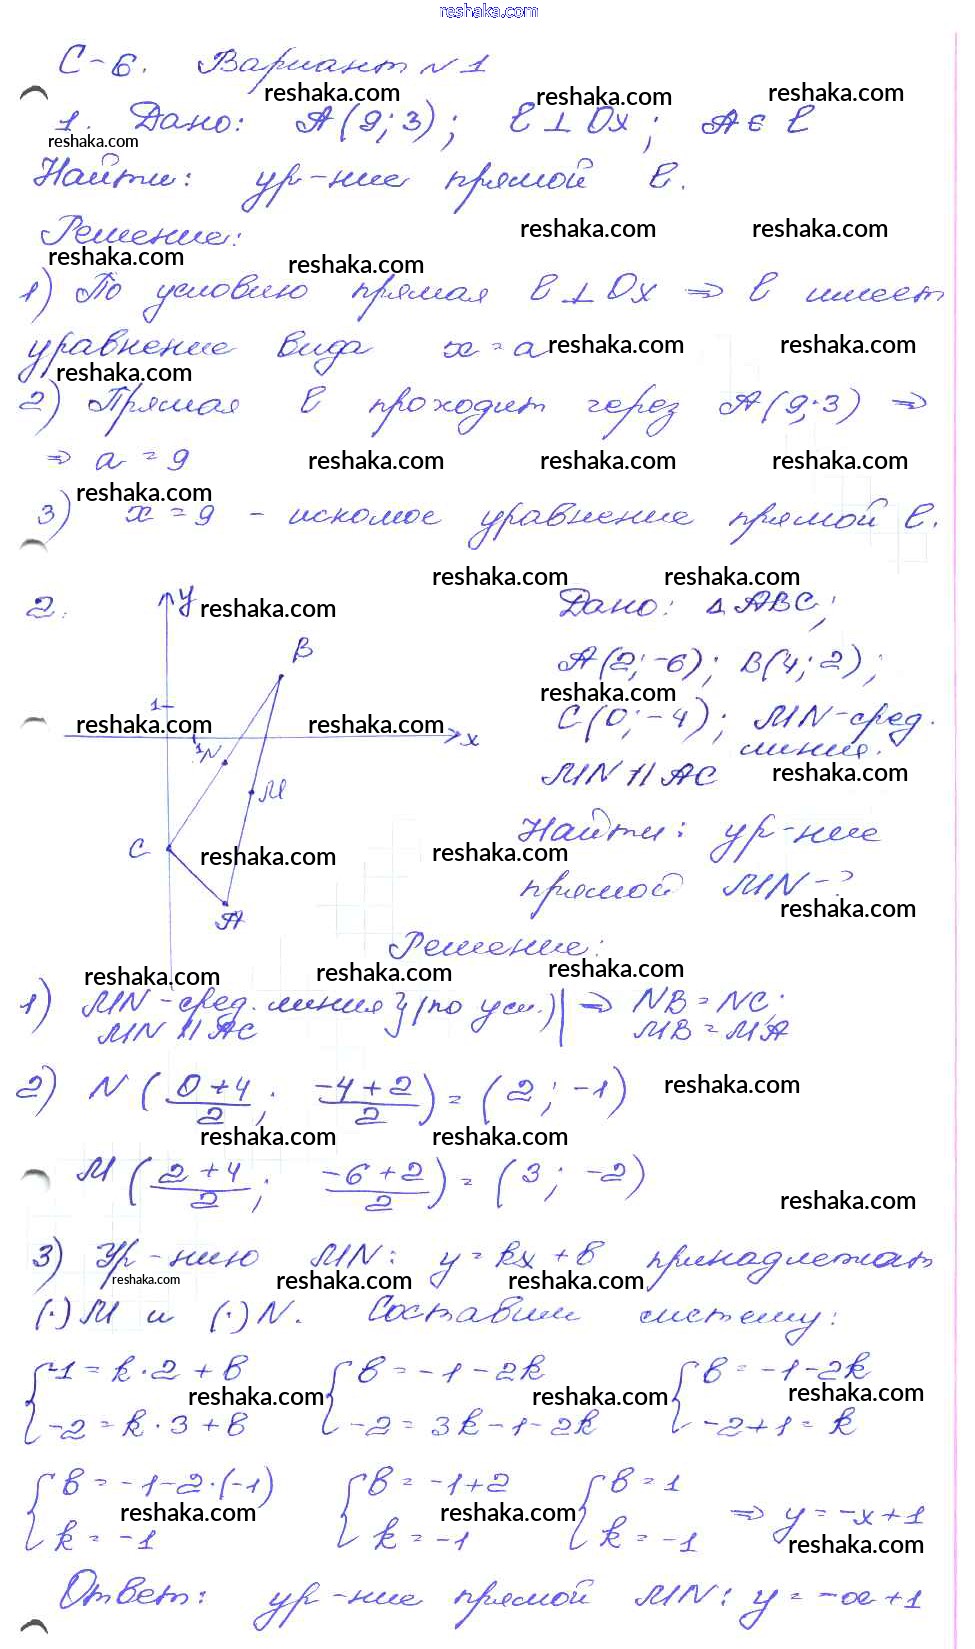 reshaka.com
С-6. Вариант №1
1. Дано: А(9;3); ℓ⊥Ох; А∈ℓ
Найти: ур-ние прямой ℓ.
Решение:
1) По условию прямая ℓ⊥Ох ⇒ ℓ имеет
уравнение вида x=a
2) Прямая ℓ проходит через А(9;3) ⇒
⇒ a=9
3) x=9 - искомое уравнение прямой ℓ.
2.
y
B
1
1
x
N
M
C
A
Дано: ΔABC;
A(2;-6); B(4;2);
C(0;-4); MN-сред.
линия.
MN || AC
Найти: ур-ние
прямой MN-?
Решение:
1) MN-сред. линия } (по усл.) | ⇒ NB=NC;
MN || AC MB=MA
2) N(0+4/2; -4+2/2) = (2; -1)
M(2+4/2; -6+2/2) = (3; -2)
3) Ур-нию MN: y=kx+b принадлежат
(·)M и (·)N. Составим систему:
{-1=k·2+b {b=-1-2k {b=-1-2k
{-2=k·3+b {-2=3k-1-2k {-2+1=k
{b=-1-2·(-1) {b=-1+2 {b=1
{k=-1 {k=-1 {k=-1 ⇒ y=-x+1
Ответ: ур-ние прямой MN: y=-x+1